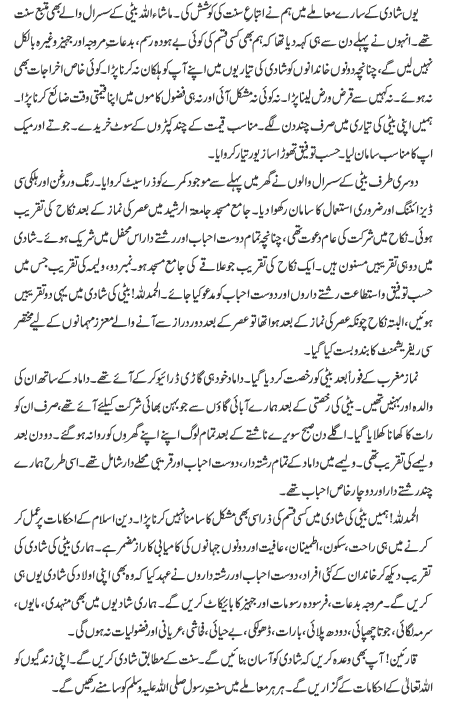 یوں شادی کے سارے معاملے میں ہم نے اتباعِ سنت کی کوشش کی۔ ماشاء اللہ بیٹی کے سسرال والے بھی متبع سنت
تھے۔ انہوں نے پہلے دن سے ہی کہہ دیا تھا کہ ہم بھی کسی قسم کی کوئی بے ہودہ رسم، بدعاتِ مروجہ اور جہیز وغیرہ بالکل
نہیں لیں گے، چنانچہ دونوں خاندانوں کو شادی کی تیاریوں میں اپنے آپ کو ہلکان نہ کرنا پڑا۔ کوئی خاص اخراجات بھی
نہ ہوئے۔ نہ کہیں سے قرض ورض لینا پڑا۔ نہ کوئی نہ مشکل آئی اور نہ ہی فضول کاموں میں اپنا قیمتی وقت ضائع کرنا پڑا۔
ہمیں اپنی بیٹی کی تیاری میں صرف چند دن لگے۔ مناسب قیمت کے چند کپڑوں کے سوٹ خریدے۔ جوتے اور میک
اپ کا مناسب سامان لیا۔ حسب توفیق تھوڑا سا زیور تیار کروایا۔
دوسری طرف بیٹی کے سسرال والوں نے گھر میں پہلے سے موجود کمرے کو ذرا سیٹ کروایا۔ رنگ و روغن اور ہلکی سی
ڈیزائننگ اور ضروری استعمال کا سامان رکھوا دیا۔ جامع مسجد جامعۃ الرشید میں عصر کی نماز کے بعد نکاح کی تقریب
ہوئی۔ نکاح میں شرکت کی عام دعوت تھی، چنانچہ تمام دوست احباب اور رشتے دار اس محفل میں شریک ہوئے۔ شادی
میں دو ہی تقریبیں مسنون ہیں۔ ایک نکاح کی تقریب جو علاقے کی جامع مسجد ہو۔ نمبر دو، ولیمہ کی تقریب جس میں
حسب توفیق و استطاعت رشتے داروں اور دوست احباب کو مدعو کیا جائے۔ الحمدللہ! بیٹی کی شادی میں یہی دو تقریبیں
ہوئیں، البتہ نکاح چونکہ عصر کی نماز کے بعد ہوا تھا تو عصر کے بعد دور دراز سے آنے والے معزز مہمانوں کے لیے مختصر
سی ریفریشمنٹ کا بندوبست کیا گیا۔
نماز مغرب کے فوراً بعد بیٹی کو رخصت کر دیا گیا۔ داماد خود ہی گاڑی ڈرائیو کر کے آئے تھے۔ داماد کے ساتھ ان کی
والدہ اور بہنیں تھیں۔ بیٹی کی رخصتی کے بعد ہمارے آبائی گاؤں سے جو بہن بھائی شرکت کیلئے آئے تھے، صرف ان کو
رات کا کھانا کھلایا گیا۔ اگلے دن صبح سویرے ناشتے کے بعد تمام لوگ اپنے اپنے گھروں کو روانہ ہو گئے۔ دو دن بعد
ولیمے کی تقریب تھی۔ ولیمے میں داماد کے تمام رشتہ دار، دوست احباب اور قریبی محلے دار شامل تھے۔ اسی طرح ہمارے
چند رشتے دار اور دو چار خاص احباب تھے۔
الحمدللہ! ہمیں بیٹی کی شادی میں کسی قسم کی ذرا سی بھی مشکل کا سامنا نہیں کرنا پڑا۔ دین اسلام کے احکامات پر عمل کر
کرنے میں ہی راحت، سکون، اطمینان، عافیت اور دونوں جہانوں کی کامیابی کا راز مضمر ہے۔ ہماری بیٹی کی شادی کی
تقریب دیکھ کر خاندان کے کئی افراد، دوست احباب اور رشتہ داروں نے عہد کیا کہ وہ بھی اپنی اولاد کی شادی یوں ہی
کریں گے۔ مروجہ بدعات، فرسودہ رسومات اور جہیز کا بائیکاٹ کریں گے۔ ہماری شادیوں میں بھی منہدی، مایوں،
سرمہ لگائی، جوتا چھپائی، دودھ پلائی، بارات، ڈھولکی، بے حیائی، فحاشی، عریانی اور فضولیات نہ ہوں گی۔
قارئین! آپ بھی وعدہ کریں کہ شادی کو آسان بنائیں گے۔ سنت کے مطابق شادی کریں گے۔ اپنی زندگیوں کو
اللہ تعالیٰ کے احکامات کے گزاریں گے۔ ہر ہر معاملے میں سنتِ رسول صلی اللہ علیہ وسلم کو سامنے رکھیں گے۔